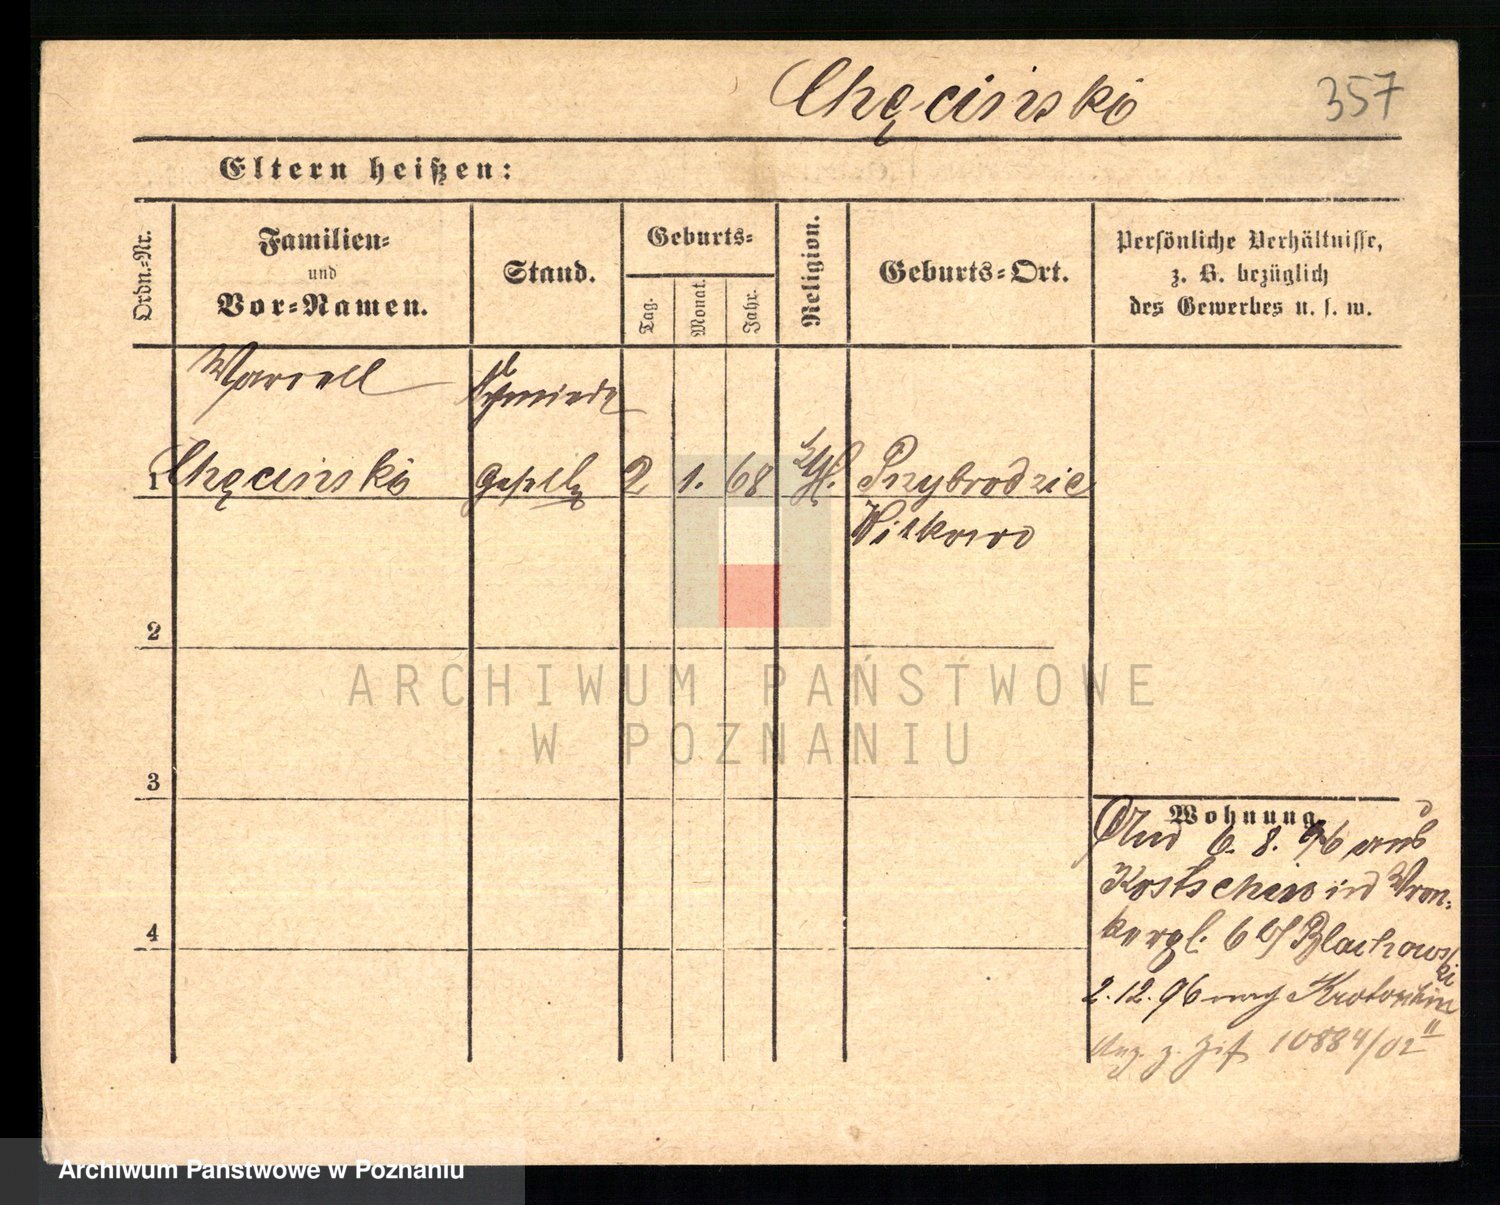 Chęcinski 357
Eltern heißen:
Ordn.-Nr.
Familien-
und
Vor-Namen.
Stand.
Geburts-
Tag.
Monat.
Jahr.
Religion.
Geburts-Ort.
Persönliche Verhältnisse,
z. B. bezüglich
des Gewerbes u. s. w.
Marcell Schmiede
1 Chęcinski Geselle 2 1. 68 kth. Przybrodzic
Witkowo
2
3
4
Wohnung
6. 8. 96 aus
Kostschin in Wron-
kerpl. 6 b/ Blachowski
2.12.96 nach Krotoschin
10884/02 II
ARCHIWUM PAŃSTWOWE
W POZNANIU
Archiwum Państwowe w Poznaniu